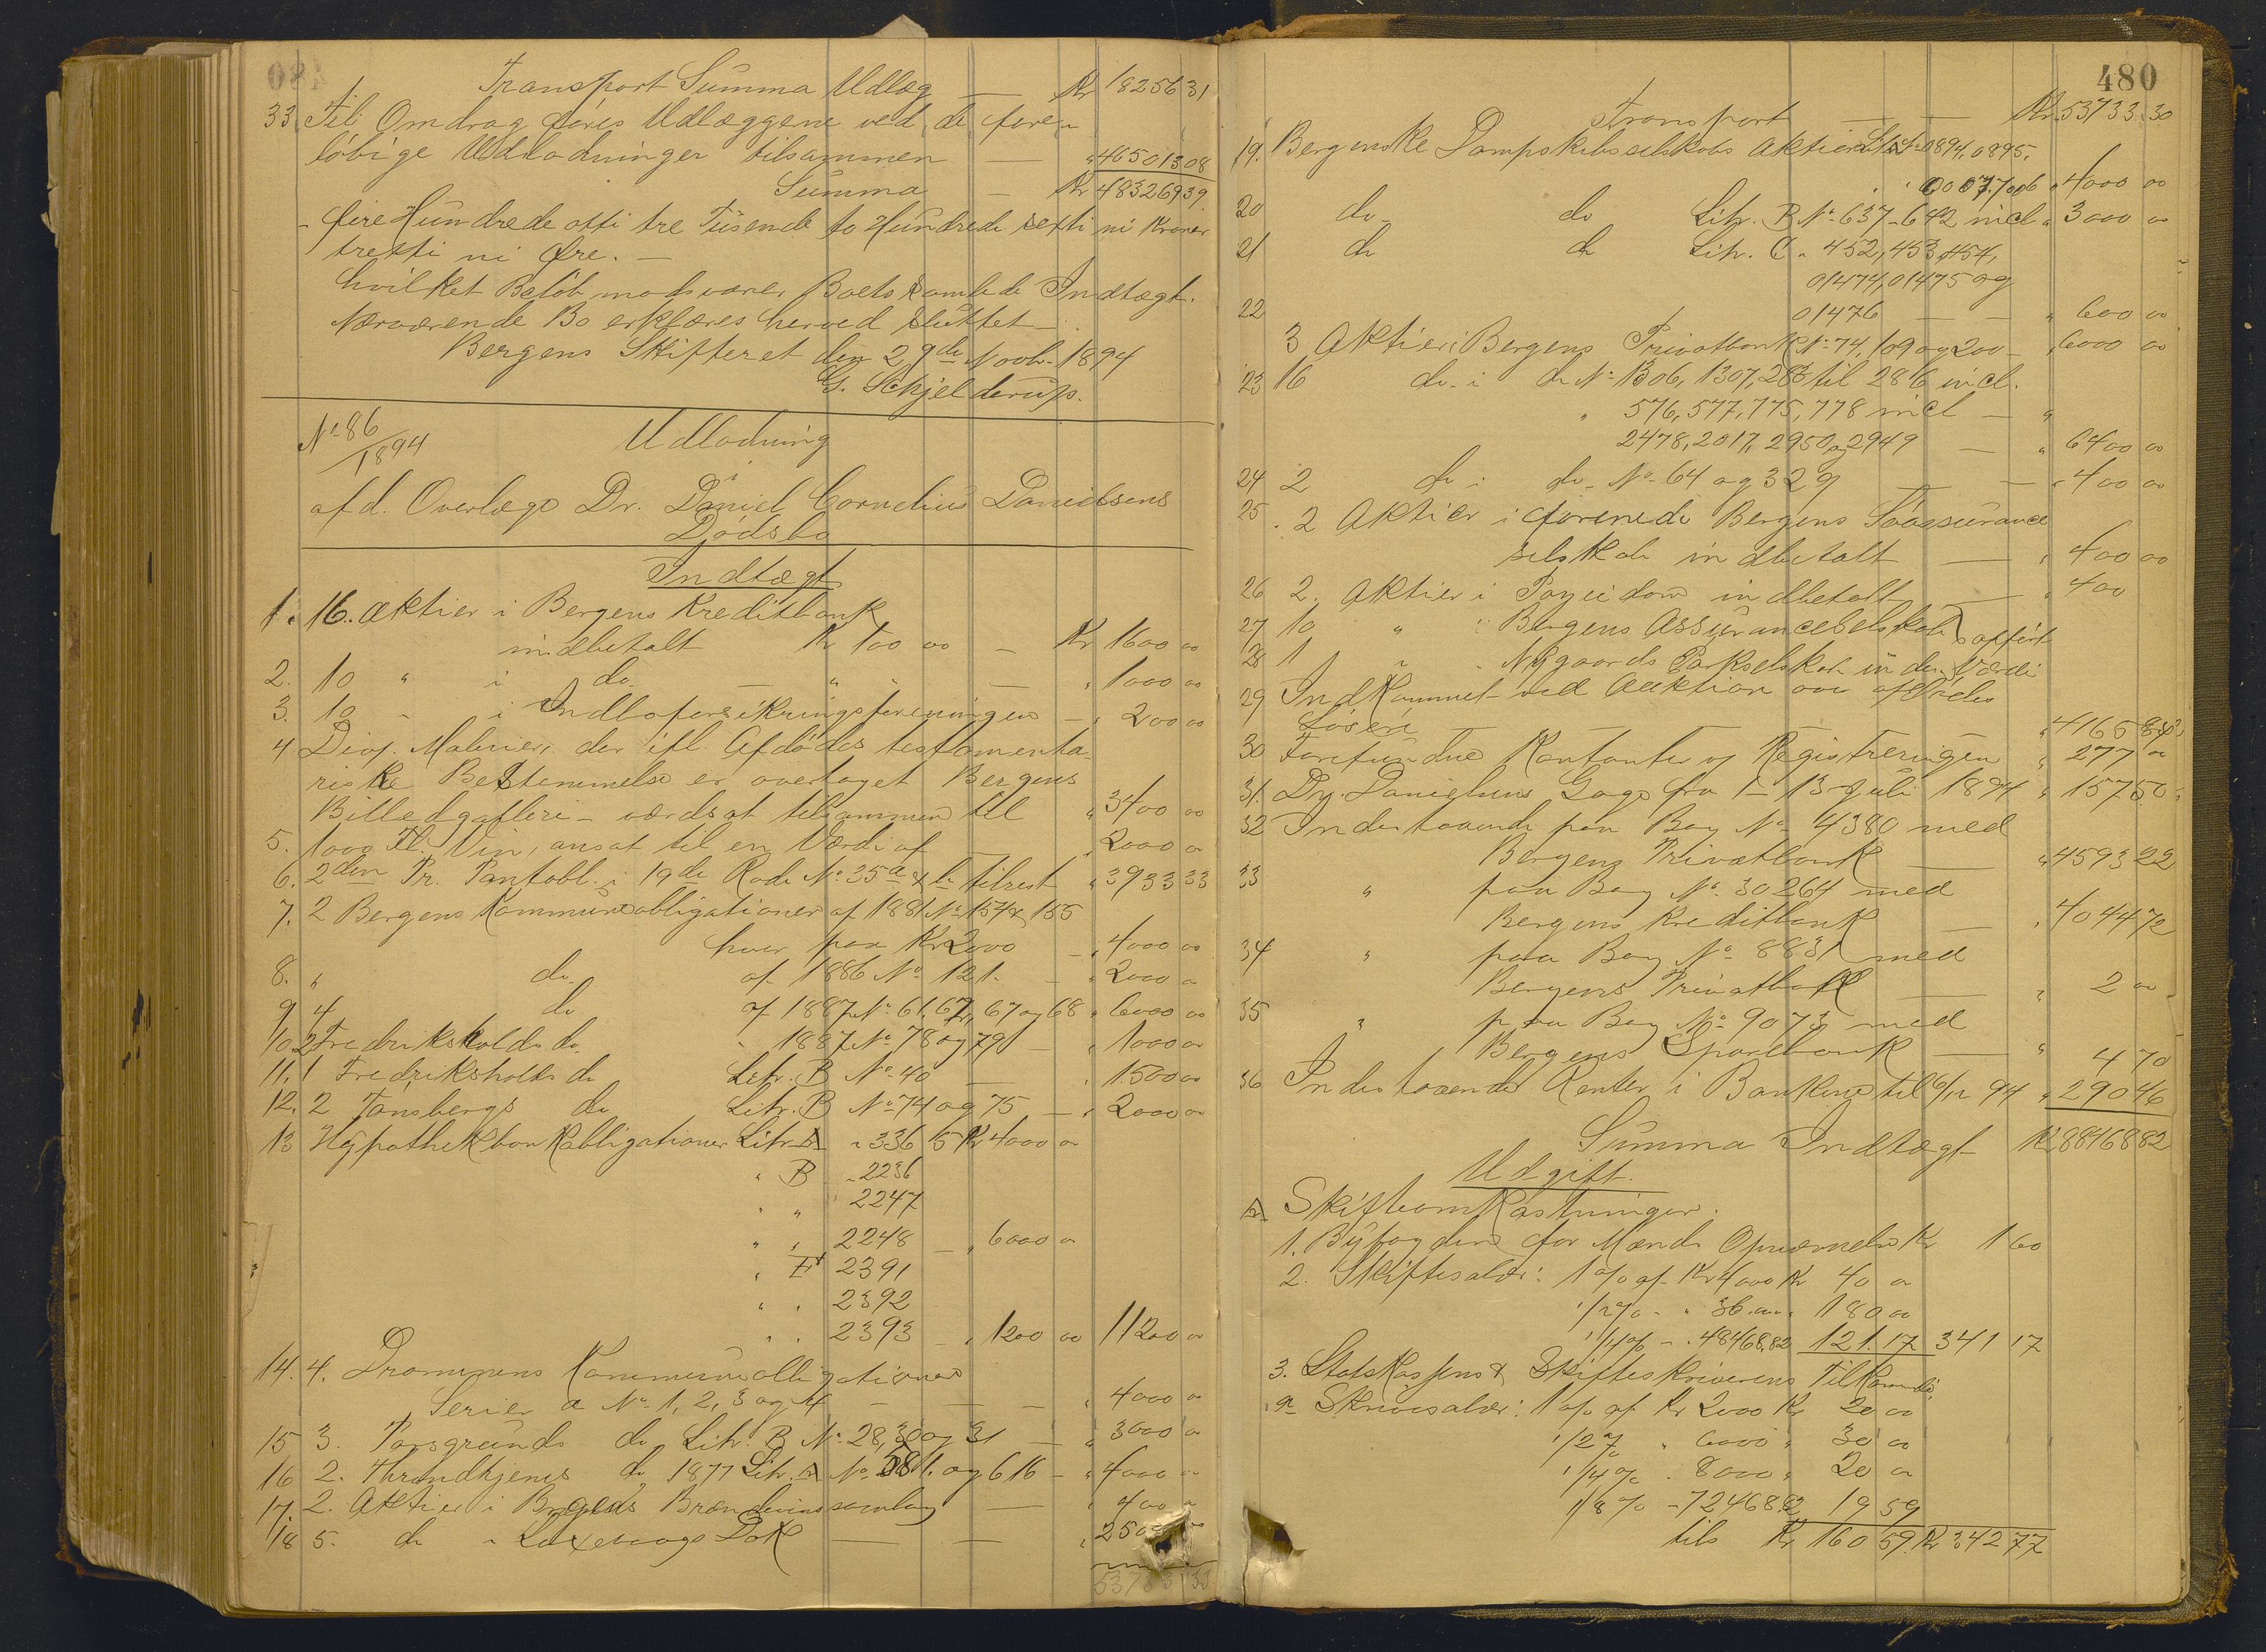 Transport Summa Udlæg — Kr 18256 31
33. Til Omdrag føres Udlæggene ved de fore-
løbige Udlodninger tilsammen — " 465013 08
Summa — Kr 483269 39
- fire Hundrede otti tre Tusende to Hundrede sexti ni Kroner
tretti ni Øre. —
hvilket Beløb modsvarer Boets samlede Indtægt.
Nærværende Bo erklæres herved sluttet —
Bergens Skifteret den 29de Novbr. 1894
G. Schjelderup.
No 86/1894
Udlodning
i
afd. Overlæge Dr. Daniel Cornelius Danielsens
Dødsbo
Indtægt
1. 16. Aktier i Bergens Kreditbank
indbetalt Kr 100 00 — Kr 1600 00
2. 10 " i do. — " — " 1000 00
3. 10 " i Indboforsikringsforeningen — " 200 00
4 Div. Malerier, der ifl. Afdødes testamenta-
riske Bestemmelse er overtaget Bergens
Billedgalleri — værdsat tilsammen til " 3400 00
5. 1000 Fl. Vin, ansat til en Værdi af — " 2000 00
6. 2den Pr. Pantobl. i 19de Rode No 35a & b tilrest " 3933 33
7. 2 Bergens Kommuneobligationer af 1881 No 154 & 155
hver paa Kr 2000 — " 4000 00
8. " do. af 1886 No 121. — " 2000 00
9 4 do af 1887 No 61, 62, 67 og 68 " 6000 00
10 2 Fredriksholds do. " 1887 No 78 og 79 — " 1000 00
11. 1 Fredriksholds do Litr. B No 40 — " 1500 00
12. 2 Tønsbergs do Litr. B No 74 og 75 — " 2000 00
13 Hypothekbankobligationer Litr. A " 3365 Kr 4000 00
" B " 2236
" " 2247
" " 2248 — " 6000 00
" F 2391
" " 2392
" " 2393 — " 1200 00 11200 00
14. 4. Drammens Kommuneobligationer
Serier a No 1, 2, 3 og 4 — — — " 4000 00
15 3. Porsgrunds do Litr. B No 28, 30 og 31 — " 3000 00
16 2. Throndhjems do 1877 Litr. A No 581. og 616 — " 4000 00
17. 2. Aktier i Bergens Brændevinssamlag — " 400 00
18 5. do " Laxevaags Dok — — " 2500
53733 33
480
Transport — — Kr. 53733 30
19. Bergenske Dampskibsselskabs Aktier Litr. A No 0894, 0895,
4000 00
20 do. do Litr. B No 637 - 642 incl " 3000 00
21 do do Litr. C. " 452, 453, 454,
01474, 01475 og
22 01476 — — " 600 00
3 Aktier i Bergens Privatbank No 74, 109 og 200 — " 6000 00
23 16 do. i do No 1306, 1307, 283 til 286 incl.
" 576, 577, 775, 778 incl — "
2478, 2017, 2950 og 2949 — " 6400 00
24 2 do i do. No 64 og 329 — — " 400 00
25. 2 Aktier i forenede Bergens Søassurance
selskab indbetalt — " 400 00
26 2. Aktier i Poseidon indbetalt — " 400
27 10 " " Bergens Assuranceselskab } opført
28 1 " " Nygaards Parkselskab } uden Værdi
29 Indkommet ved Auktion over afdødes
Løsøre — — — " 4165 89
30 Forefundne Kontanter v/ Registreringen " 277 00
31. Dr. Danielsens Gage fra 1 - 13 Juli 1894 " 157 50
32 Indestaaende paa Bog No 4380 med
Bergens Privatbank — " 4593 22
33 " paa Bog No. 30264 med
Bergens Kreditbank — " 4044 72
34 " paa Bog No. 8831 med
Bergens Privatbank — " 2 00
35 " paa Bog No 9073 med
Bergens Sparebank — " 4 70
36 Indestaaende Renter i Bankerne til 6/12 94 " 290 46
Summa Indtægt Kr 88468 82
Udgift.
A Skifteomkostninger.
1. Byfogden for Mænds Opnævnelse Kr 1 60
2. Skiftesalær: 1 o/o af Kr 4000 Kr 40 00
1/2 % - " 36.000 " 180 00
1/4 % - " 48468,82 121.17 341 17
3. Statskassens & Skifteskriverens Tilkommende,
a. Skriversalær: 1 o/o af Kr 2000 Kr 20 00
1/2 % " 6000 " 30 00
1/4 % " 8000 " 20 00
1/8 % - 72468 82 19 59
tils Kr 160 59. Kr 342 77